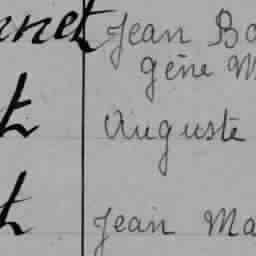 nnet Jean Ba
gène M
t Auguste
t Jean Ma